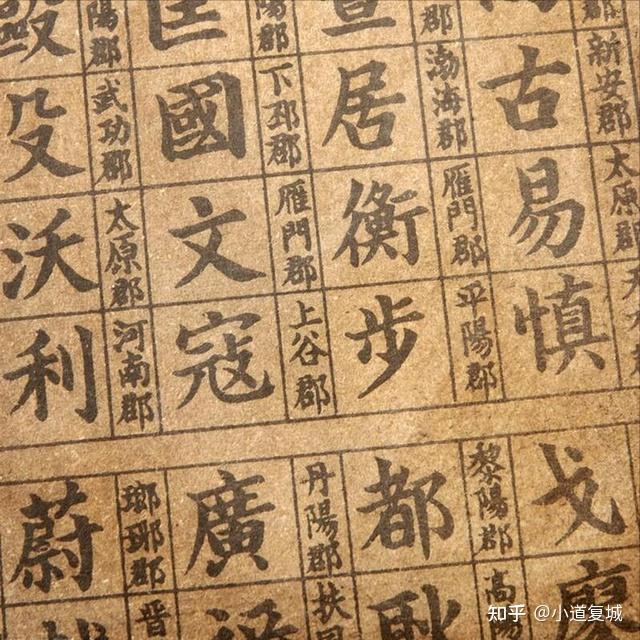 郡新安郡太原郡
古易慎戈
郡渤海郡雁門郡平陽郡黎陽郡高
居衡步都耿
陽郡下邳郡雁門郡上谷郡丹陽郡扶
匡國文寇廣
陽郡武功郡太原郡河南郡瑯琊郡晉
殳沃利蔚
知乎 @小道复城